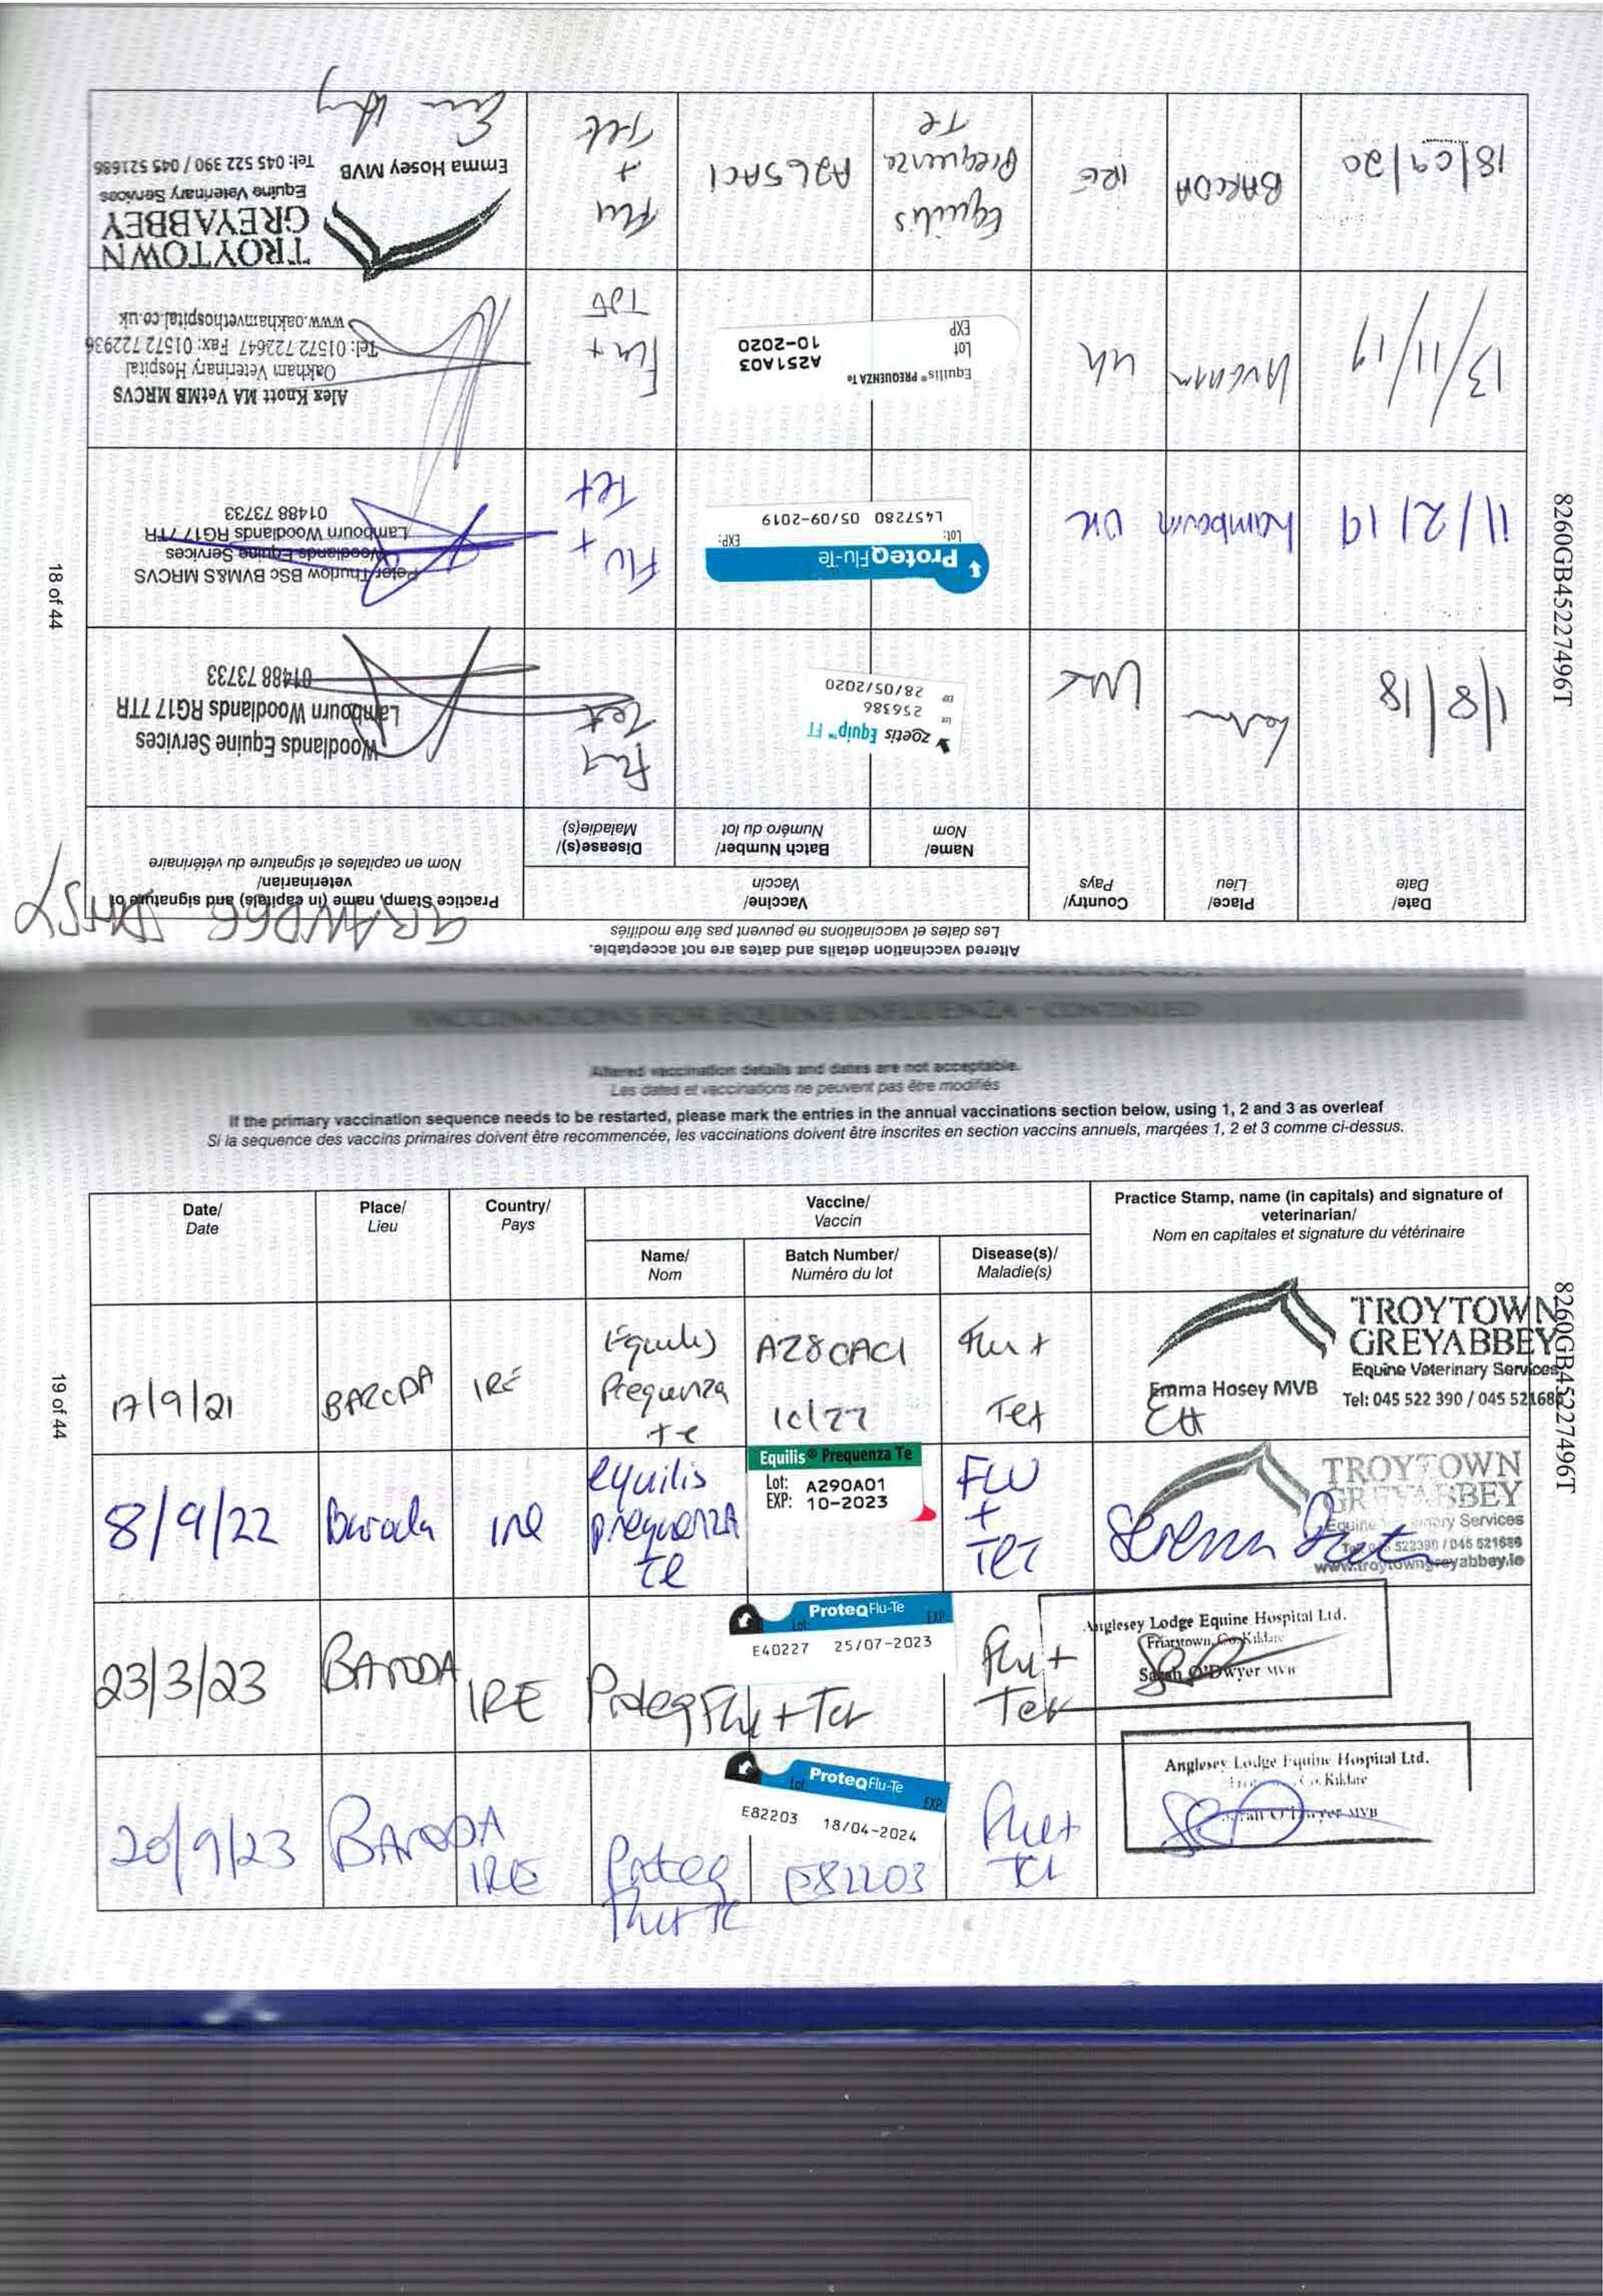 8260GB45227496T
18 of 44
GRANDEE DAISY
Altered vaccination details and dates are not acceptable.
Les dates et vaccinations ne peuvent pas être modifiés
Date/
Date
Place/
Lieu
Country/
Pays
Vaccine/
Vaccin
Name/
Nom
Batch Number/
Numéro du lot
Disease(s)/
Maladie(s)
Practice Stamp, name (in capitals) and signature of
veterinarian/
Nom en capitales et signature du vétérinaire
1/8/18
UK
zoetis Equip™ FT
Lot 256386
EXP 28/05/2020
Flu
Tet
Woodlands Equine Services
Lambourn Woodlands RG17 7TR
01488 73733
11/2/19
Lambourn
UK
ProteqFlu-Te
Lot: EXP:
L457280 05/09-2019
Flu
+
Tet
Peter Thurlow BSC BVM&S MRCVS
Woodlands Equine Services
Lambourn Woodlands RG17 7TR
01488 73733
13/11/19
UK
Equilis® PREQUENZA Te
Lot A251A03
EXP 10-2020
Flu +
Tet
Alex Knott MA VetMB MRCVS
Oakham Veterinary Hospital
Tel: 01572 722647 Fax: 01572 722936
www.oakhamvethospital.co.uk
18/09/20
BARODA
IRE
Equilis
Prequenza
Te
A265AC1
Flu
+
Tet
TROYTOWN
GREYABBEY
Equine Veterinary Services
Emma Hosey MVB Tel: 045 522 390 / 045 521686
VACCINATIONS FOR EQUINE INFLUENZA - CONTINUED
Altered vaccination details and dates are not acceptable.
Les dates et vaccinations ne peuvent pas être modifiés
If the primary vaccination sequence needs to be restarted, please mark the entries in the annual vaccinations section below, using 1, 2 and 3 as overleaf
Si la sequence des vaccins primaires doivent être recommencée, les vaccinations doivent être inscrites en section vaccins annuels, marqées 1, 2 et 3 comme ci-dessus.
8260GB45227496T
19 of 44
Date/
Date
Place/
Lieu
Country/
Pays
Vaccine/
Vaccin
Name/
Nom
Batch Number/
Numéro du lot
Disease(s)/
Maladie(s)
Practice Stamp, name (in capitals) and signature of
veterinarian/
Nom en capitales et signature du vétérinaire
17/9/21
BARODA
IRE
Equilis
Prequenza
te
A280AC1
10/22
Flu +
Tet
TROYTOWN
GREYABBEY
Equine Veterinary Services
Emma Hosey MVB Tel: 045 522 390 / 045 521686
EH
8/9/22
Baroda
IRE
equilis
prequenza
te
Equilis® Prequenza Te
Lot: A290A01
EXP: 10-2023
FLU
+
TET
TROYTOWN
GREYABBEY
Equine Veterinary Services
Tel: 045 522390 / 045 521686
www.troytowngreyabbey.ie
23/3/23
BARODA
IRE
ProteqFlu + Tet
ProteqFlu-Te
Lot: EXP
E40227 25/07-2023
Flu +
Tet
Anglesey Lodge Equine Hospital Ltd.
Friarstown, Co. Kildare
Sarah O'Dwyer MVB
20/9/23
BARODA
IRE
Proteq
Flu+Te
ProteqFlu-Te
Lot EXP
E82203 18/04-2024
E82203
Flu+
Tet
Anglesey Lodge Equine Hospital Ltd.
Co. Kildare
Sarah O'Dwyer MVB